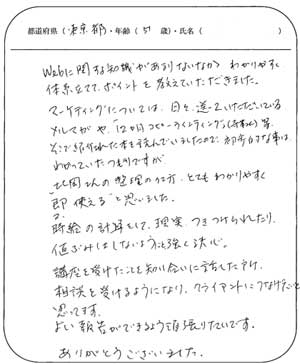 都道府県（東京都）・年齢（51歳）・氏名（　　　）
Webに関する知識があまりないなか、わかりやすく
体系立てて、ポイントを教えていただきました。
マーケティングについては、日々、送っていただいている
メルマガや、「12ヵ月コピーライティング」 等、
そこで紹介された本を読んでいましたので、初歩的な事は
わかっていたつもりですが
北岡さんの整理の仕方、とてもわかりやすく
"即 使える"と思いました。
時給の計算をして、現実、つきつけられたり、
値ぶみはしないようにと強く決心。
講座を受けたことを知り合いに話しただけで
相談を受けるようになり、クライアントにつなげたいと
思ってます。
よい報告ができるよう頑張りたいです。
ありがとうございました。